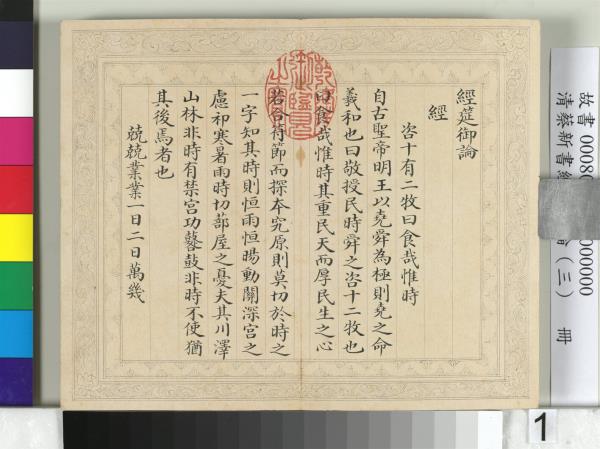 經筵御論
經
咨十有二牧曰食哉惟時
自古聖帝明王以堯舜為極則堯之命
羲和也曰敬授民時舜之咨十二牧也
曰食哉惟時其重民天而厚民生之心
若合符節而探本究原則莫切於時之
一字知其時則恒雨恒暘動關深宮之
慮祁寒暑雨時切蔀屋之憂夫其川澤
山林非時有禁宮功鼛鼓非時不使猶
其後焉者也
兢兢業業一日二日萬幾
故書 000
清蔡新書經
（三） 冊
000000
1